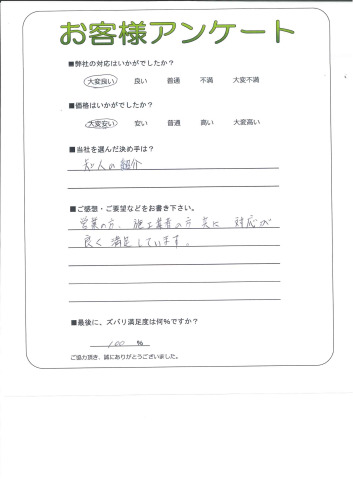 お客様アンケート
■弊社の対応はいかがでしたか？
大変良い 良い 普通 不満 大変不満
■価格はいかがでしたか？
大変安い 安い 普通 高い 大変高い
■当社を選んだ決め手は？
知人の紹介
■ご感想・ご要望などをお書き下さい。
営業の方、施工業者の方 共に 対応が
良く 満足しています。
■最後に、ズバリ満足度は何％ですか？
100 ％
ご協力頂き、誠にありがとうございました。